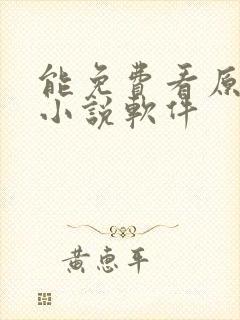 能免費看原
小說軟件
黃惠平